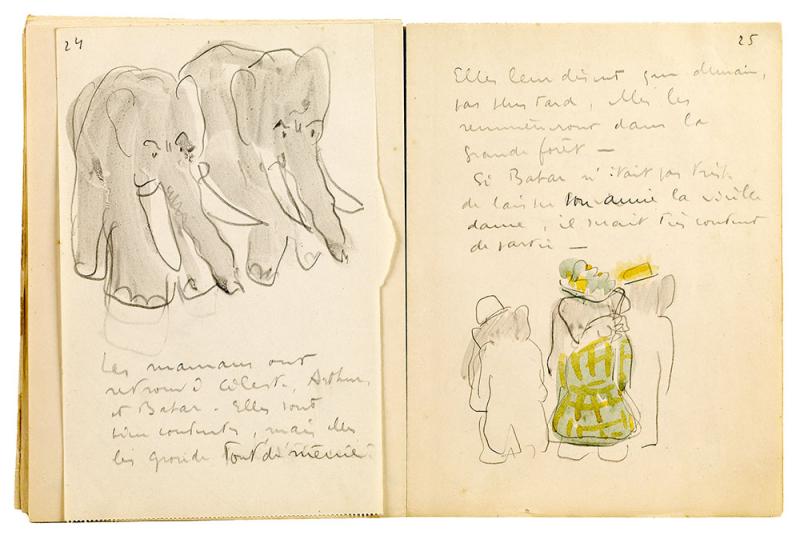 24
Les mamans ont
retrouvé Céleste, Arthur
et Babar. Elles sont
bien contentes, mais elles
les gronde tout de même
25
Elles leur disent que demain,
pas plus tard, elles les
remmèneront dans la
grande forêt —
Si Babar n'était pas triste
de laisser son amie la vieille
dame, il serait très content
de partir —